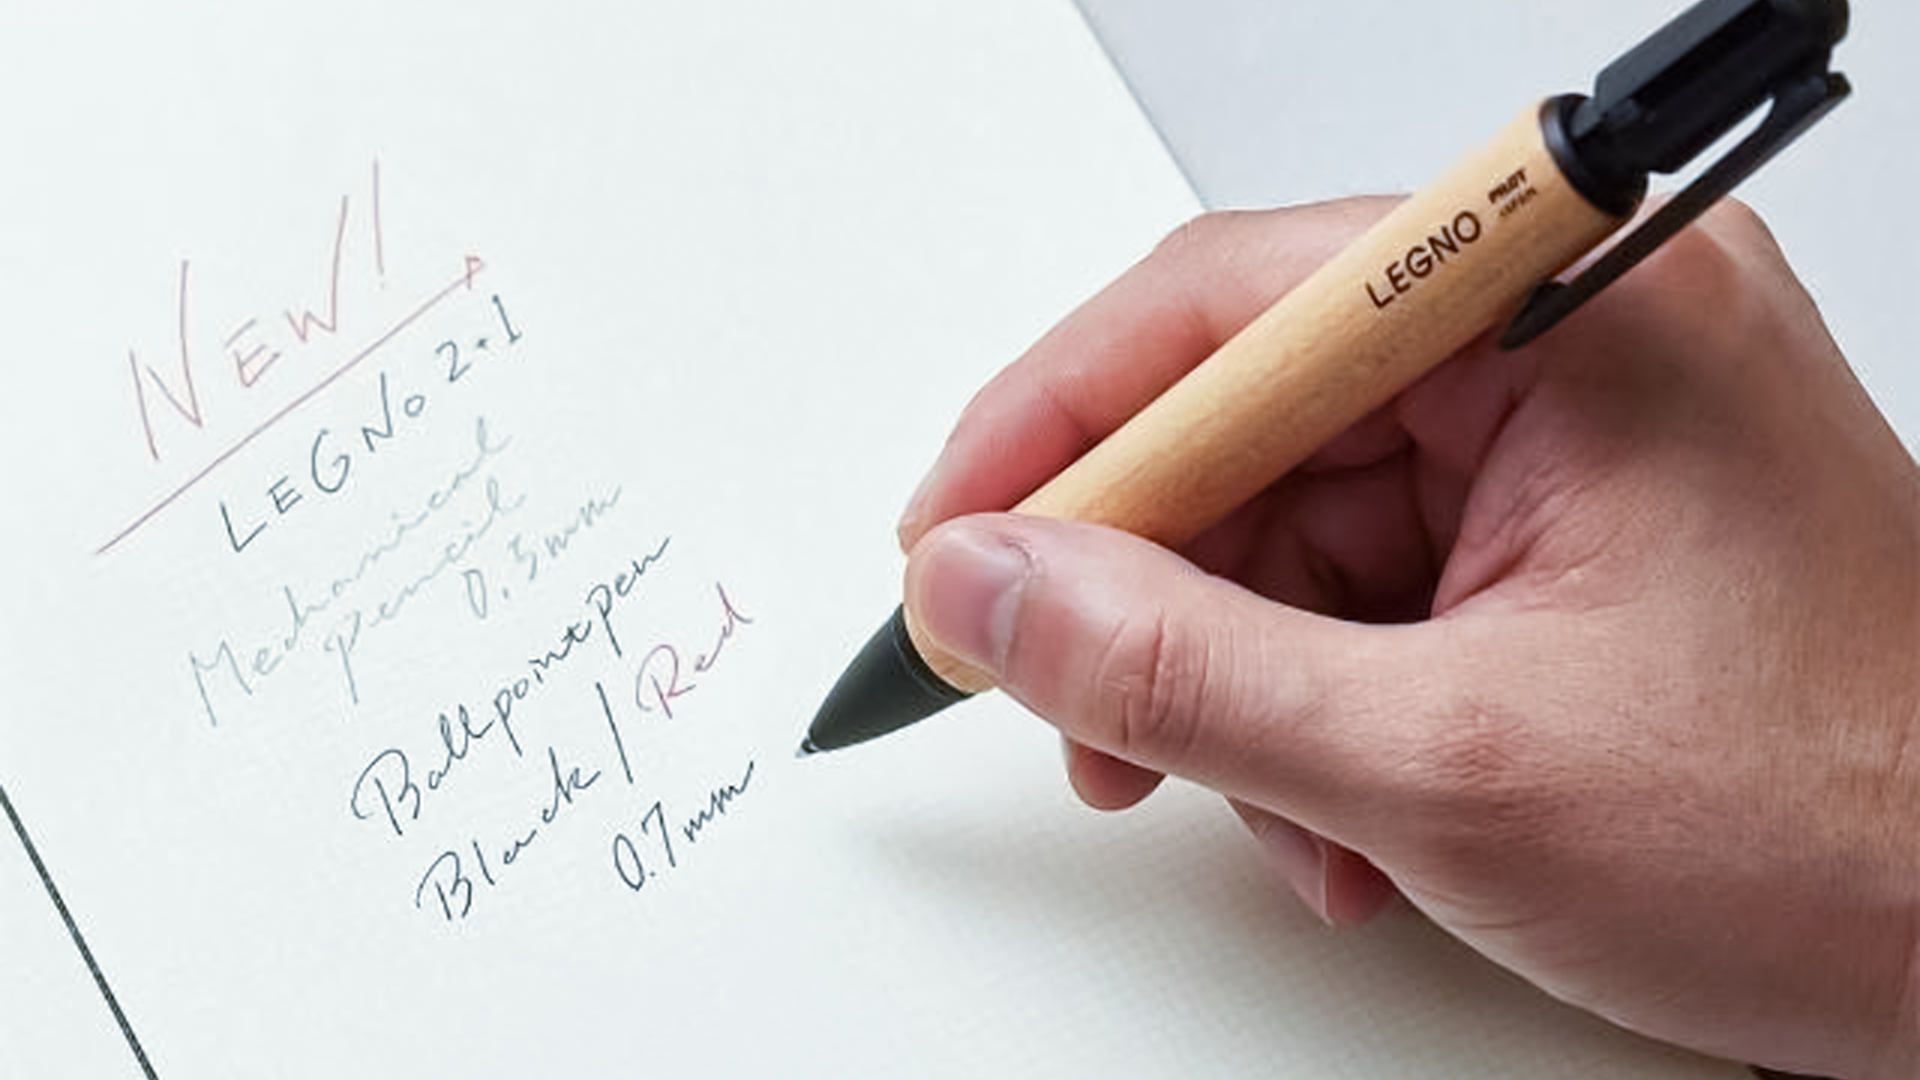 NEW!
LEGNO 2+1
Mechanical
pencil
0.5mm
Ballpoint pen
Black / Red
0.7mm
LEGNO
PILOT
JAPAN